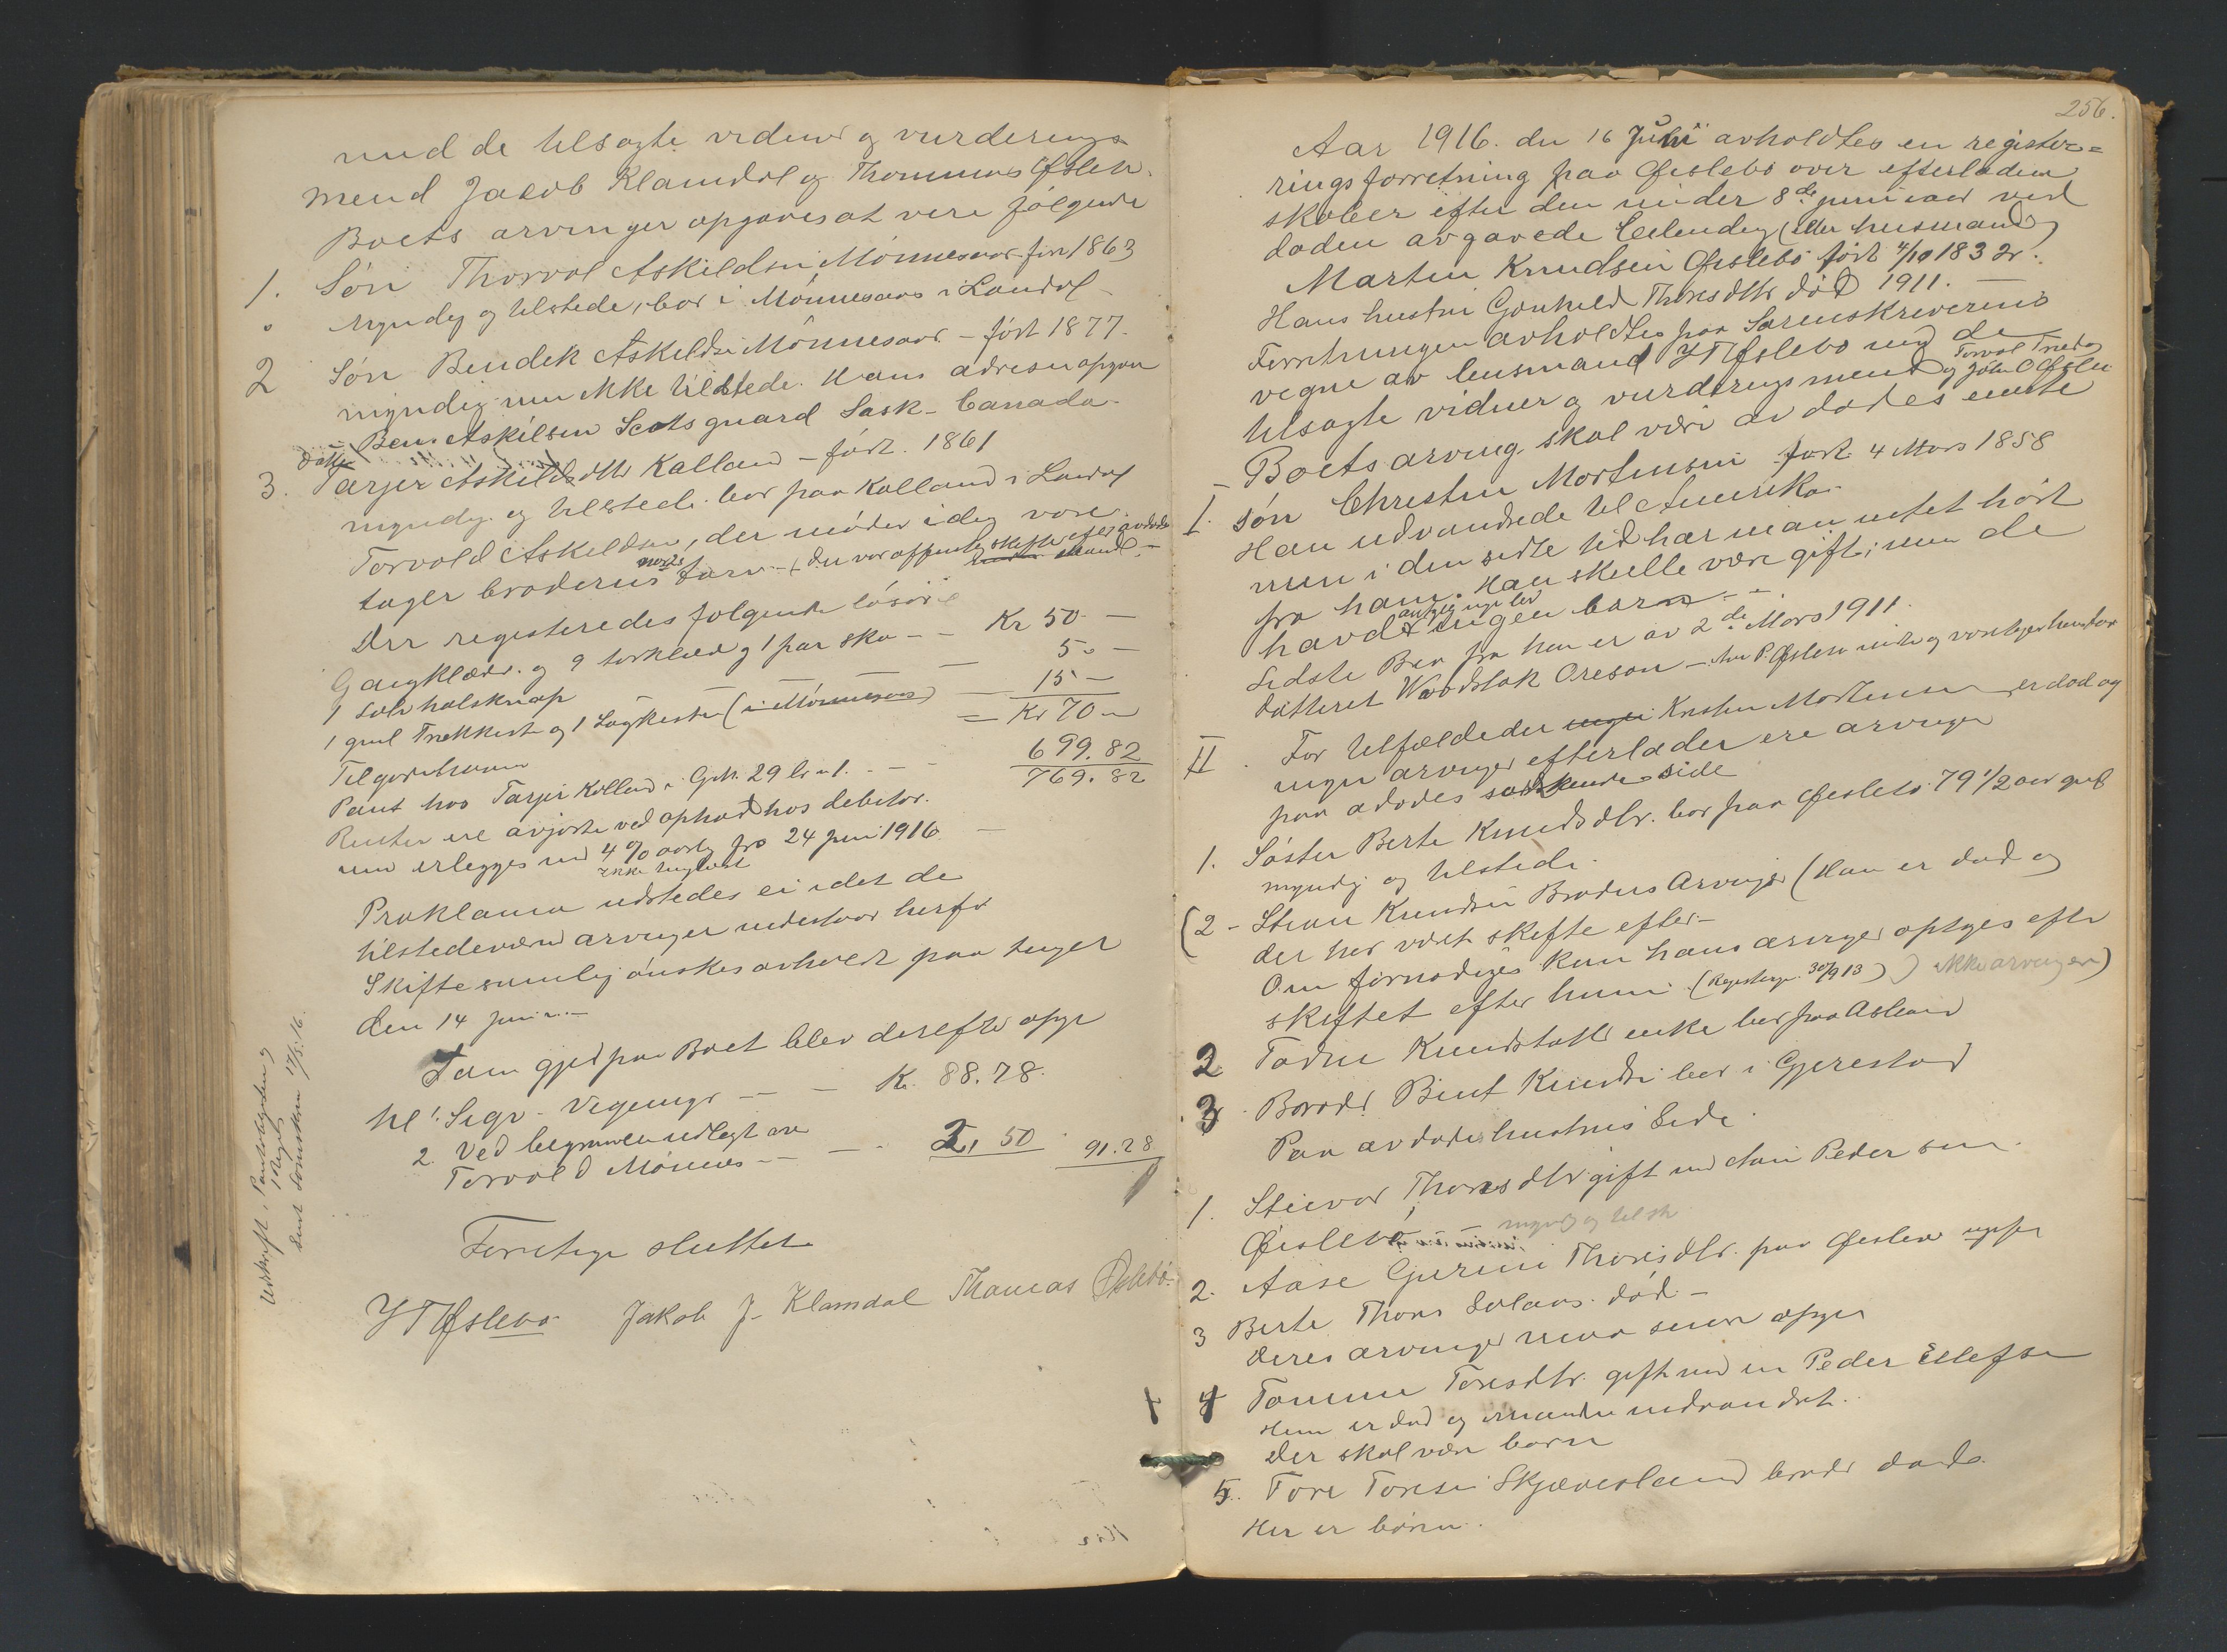 med de tilsagte vidner og vurderings
mend Jacob Klamdal og Thommas Øslen.
Boets arvinger opgaves at vere følgende
1. Søn Thorvol Askildsen Mønnesaas født 1863
Myndig og tilstede, bor i Mønnesaas i Laudal
2 Søn Bendek Askildsen Mønnesaas - født 1877.
myndig men ikke tilstede. Hans adresse opgav
Ben Askilsen Scotsguard Sask - Canada
datter
3. Tarjer Askildsdtr Kalland - født. 1861
myndig og tilstede bor paa Kalland i Laudal
Torvold Askildsen, der møder idag
tager broderens tarv - (der var offentlig skifte efter avdøde
Der registeredes følgende løsøre
Gangklæder og 9 tørklæd og 1 par sko - - Kr 50 -
1 sølv halsknap 5 -
1 gml Trækkiste og 1 Lagkiste (i Mønnesaas) 15 -
Tilgodehavende = Kr 70 -
Pant hos Tarjer Kolland i Gnr. 29 br n 1. - - 699.82
Renter ere avgjorte ved ophold hos debitor. 769.82
men erlegges med 4 % aarlig fra 24 juni 1916 -
ikke tinglæst
Proklama udstedes ei idet de
tilstedeværend arvinger vedestaar herfor
Skiftesamling ønskes avholdt paa tinget
den 14 juni
Som gjeld paa Boet blev derefter opgi
til 1. Sigv. Vigemyr - - - Kr. 88.78.
2 Ved begravelsen udlegt av
Torvold Mønnes - - - 2, 50 91.28
Forretnge sluttet
Y T Øslebø Jakob J. Klamdal Thomas Øslebø.
Utskrift i Panteregisteret og
sendt Sorenskr 17/5.16.
256.
Aar 1916. den 16 Juni avholdtes en register=
ringsforretning paa Øislebø over efterladen
skaber efter den under 8de juni ved
døden avgaaede (eller husmand)
Martin Knudsen Øislebø født 4/10 1832.
Hans hustru Gonhild Thoresdtr død 1911. -
Forretningen avholdtes paa Sorenskriverens
vegne av lensmand Y T Øslebø med de
tilsagte vidner og vurderingsmend Torvol Tveda og John O Øslen
- Boets arving skal være av dødes eneste
I. søn Christen Mortensen født 4 Mars 1858
Han udvandrede til Amerika.
men i den sidste tid har man intet hørt
fra ham. Han skulle være gift; men de
havde angivelig ingen barn - -
Sidste Brev fra han er av 2de Mars 1911.
datteret Woodstok Oreson -
II. For tilfælde der Kristen Mortensen er død og
ingen arvinger efterlader ere arvinger
paa adødes søskendes side
1. Søster Berte Knudsdtr. bor paa Øislebø 79 1/2 aar gml
myndig og tilstede.
(2 - Stian Knudsen Broders Arvinger (Han er død og
der har veret skifte efter -
Om fornødiges kan hans arvinger optages efter
skiftet efter ham. (Registerg. 30/9 13) ) ikke arvinger)
2 Todne Knudsdatter enke bor paa Aslan
3 Broder Bent Knudsen bor i Gjerestad
Paa avdødes hustrus Side.
1. Stievor Thoresdtr gift med Ani Pedersen.
Øislebø - - myndig og tilst
2. Aase Gurine Thoresdtr. paa Øislen ugift
3 Berte Thores Solaas. død. -
Deres arvinger maa senere opgis
4 Tomine Toresdtr. gift med en Peder Ellefsen
Hun er død og manden udvandret.
Der skal være barn
5. Tore Toresen Skjævesland broder død
Her er børn.